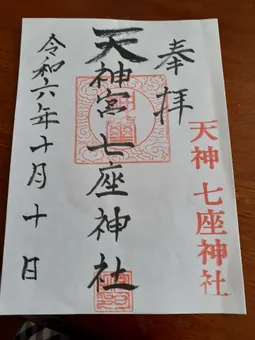 奉拝
天神宮七座神社
令和六年十月十日
天神七座神社